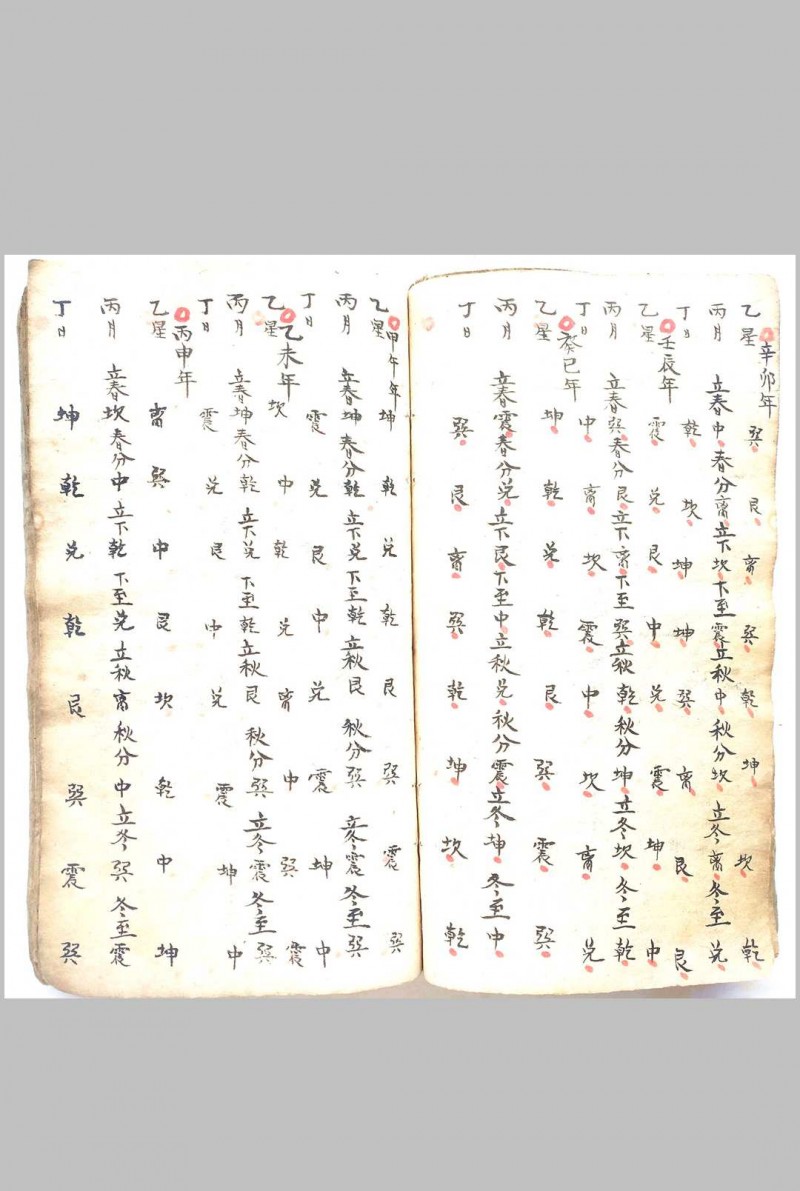 辛卯年
乙星 巽 艮 离 巽 乾 坤 坎 乾
丙月 立春中春分离立下坎下至震立秋中秋分坎立冬离冬至兑
丁日 乾 坎 坤 坤 巽 离 艮 艮
壬辰年
乙星 震 兑 艮 中 兑 震 坤 中
丙月 立春巽春分艮立下离下至巽立秋乾秋分坤立冬坎冬至乾
丁日 中 离 坎 震 中 坎 离 兑
癸巳年
乙星 坤 乾 兑 乾 艮 巽 震 巽
丙月 立春震春分兑立下艮下至中立秋兑秋分震立冬坤冬至中
丁日 巽 艮 离 巽 乾 坤 坎 乾
甲午年
乙星 坤 乾 兑 乾 艮 巽 震 巽
丙月 立春坤春分乾立下兑下至乾立秋艮秋分巽立冬震冬至巽
丁日 震 兑 艮 中 兑 震 坤 中
乙未年
乙星 坎 中 乾 兑 离 中 巽 震
丙月 立春坤春分乾立下兑下至乾立秋艮秋分巽立冬震冬至巽
丁日 震 兑 艮 中 兑 震 坤 中
丙申年
乙星 离 巽 中 艮 坎 乾 中 坤
丙月 立春坎春分中立下乾下至兑立秋离秋分中立冬巽冬至震
丁日 坤 乾 兑 乾 艮 巽 震 巽